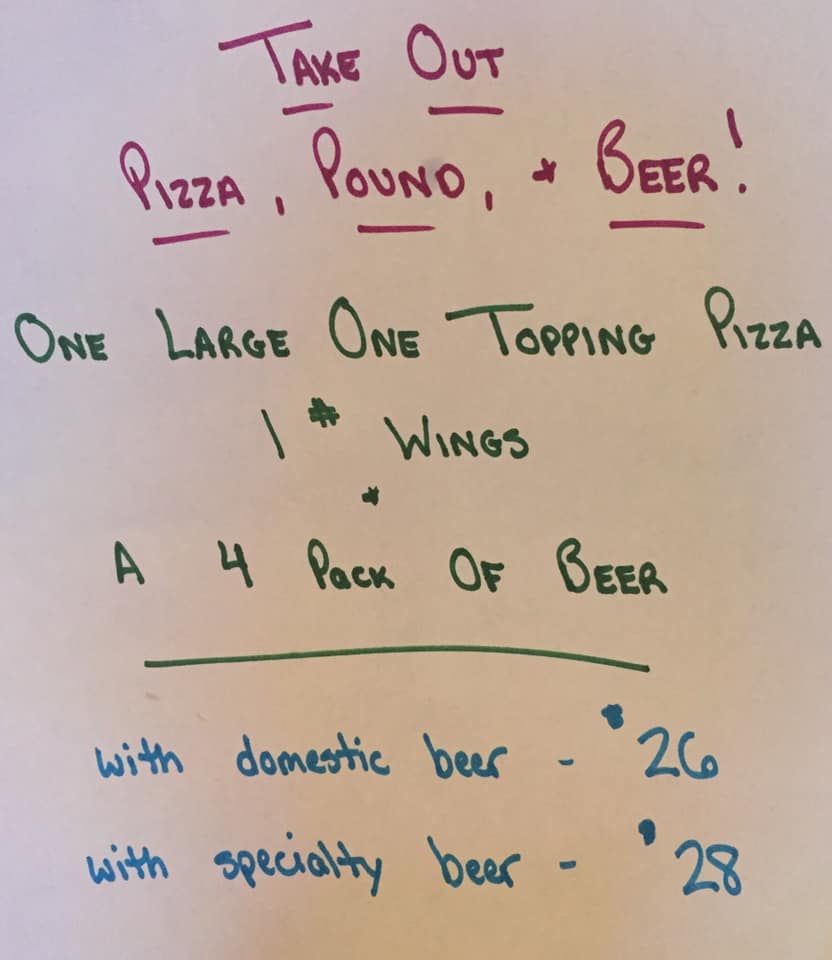 TAKE OUT
PIZZA, POUND, & BEER!
ONE LARGE ONE TOPPING PIZZA
1 # WINGS
&
A 4 PACK OF BEER
with domestic beer - $26
with specialty beer - $28